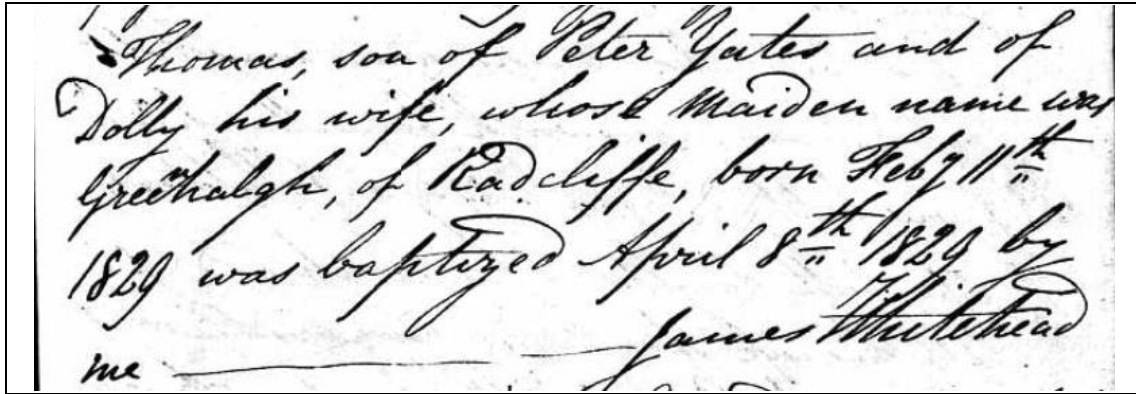 Thomas, son of Peter Yates and of
Dolly his wife, whose maiden name was
Greenhalgh, of Radcliffe, born Feby 11th
1829 was baptized April 8th 1829 by
me James Whitehead